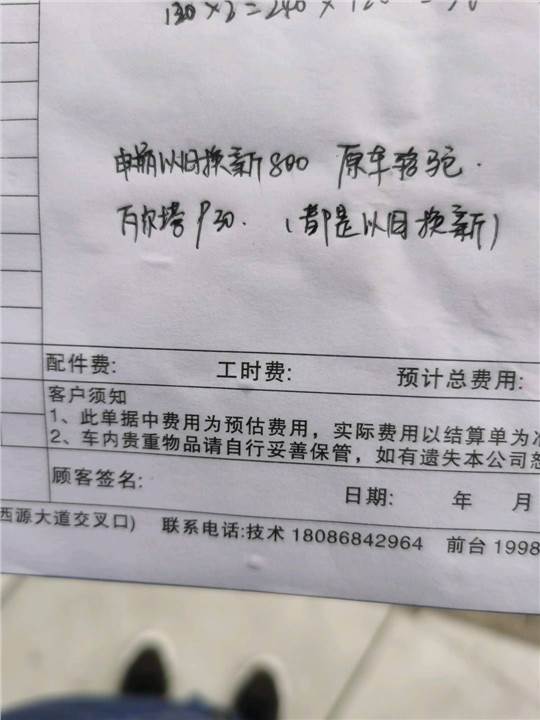 120×2=240×120=
电瓶以旧换新800 原车骆驼.
瓦尔塔930. (都是以旧换新)
配件费: 工时费: 预计总费用:
客户须知
1、此单据中费用为预估费用，实际费用以结算单为准
2、车内贵重物品请自行妥善保管，如有遗失本公司恕
顾客签名:
日期: 年 月
西源大道交叉口) 联系电话:技术 18086842964 前台 1998